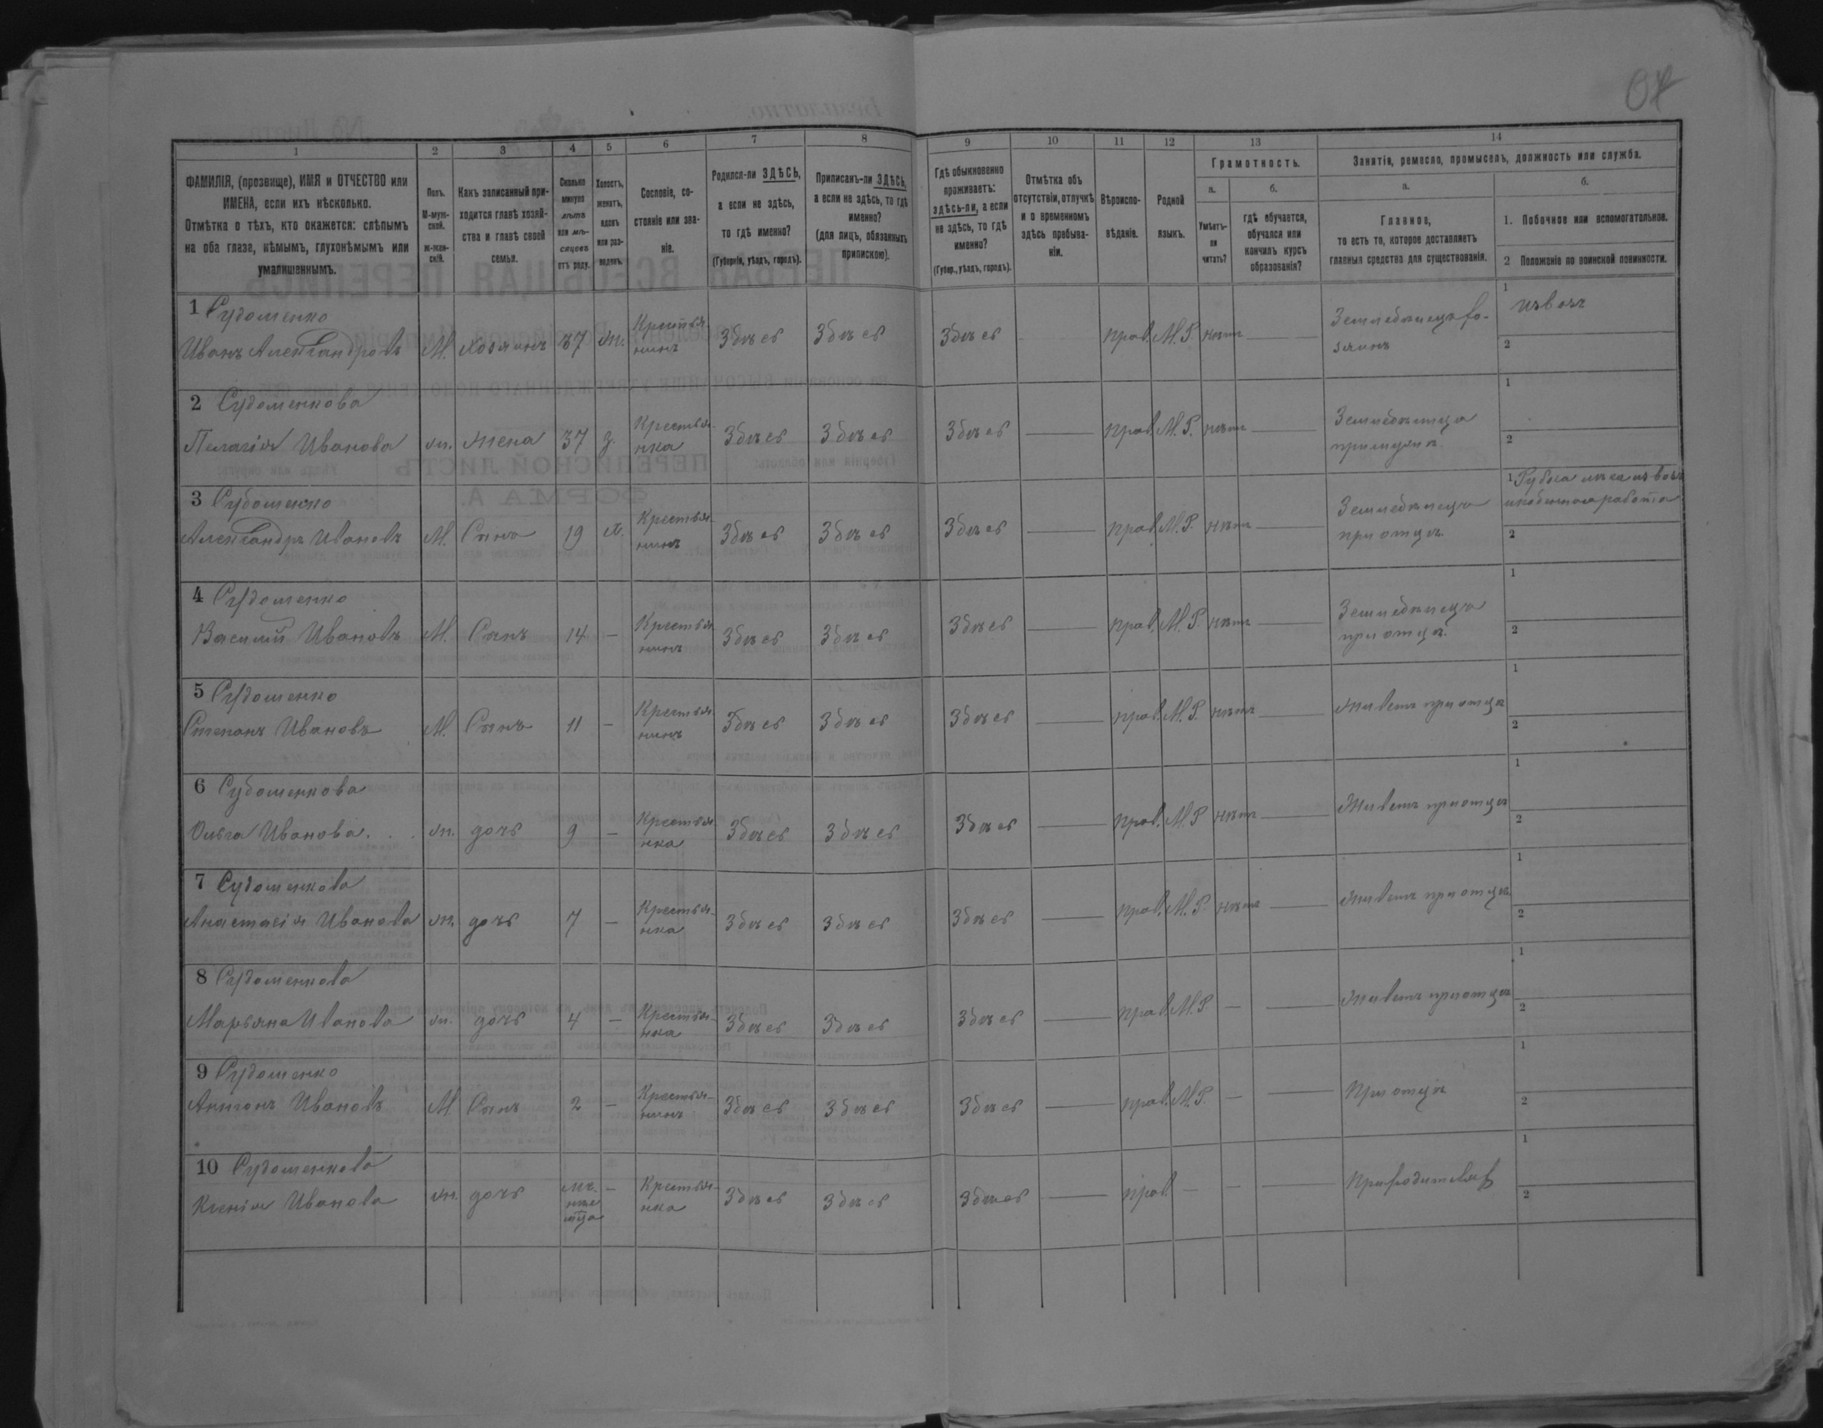 1 2 3 4 5 6 7 8 9 10 11 12 13 14
ФАМИЛІЯ, (прозвище), ИМЯ и ОТЧЕСТВО или
ИМЕНА, если ихъ нѣсколько.
Отмѣтка о тѣхъ, кто окажется: слѣпымъ
на оба глаза, нѣмымъ, глухонѣмымъ или
умалишеннымъ.
Полъ.
М-муж-
ской.
ж-жен-
скій.
Какъ записанный при-
ходится главѣ хозяй-
ства и главѣ своей
семьи.
Сколько
минуло
лѣтъ
или мѣ-
сяцевъ
отъ роду.
Холостъ,
женатъ,
вдовъ
или раз-
веденъ.
Сословіе, со-
стояніе или зва-
ніе.
Родился-ли ЗДѢСЬ,
а если не здѣсь,
то гдѣ именно?
(Губернія, уѣздъ, городъ).
Приписанъ-ли ЗДѢСЬ,
а если не здѣсь, то гдѣ
именно?
(для лицъ, обязанныхъ
припискою).
Гдѣ обыкновенно
проживаетъ:
здѣсь-ли, а если
не здѣсь, то гдѣ
именно?
(Губер., уѣздъ, городъ).
Отмѣтка объ
отсутствіи, отлучкѣ
и о временномъ
здѣсь пребыва-
ніи.
Вѣроиспо-
вѣданіе.
Родной
языкъ.
Грамотность.
а.
Умѣетъ-
ли
читать?
б.
гдѣ обучается,
обучался или
кончилъ курсъ
образованія?
Занятія, ремесло, промыселъ, должность или служба.
а.
Главное,
то есть то, которое доставляетъ
главныя средства для существованія.
б.
1. Побочное или вспомогательное.
2 Положеніе по воинской повинности.
1 Судоменко
Иванъ Александровъ М. Хозяинъ 37 ж. Крестья-
нинъ Здѣсь Здѣсь Здѣсь прав. М.Р. нѣтъ Земледѣлецъ хо-
зяинъ 1 извозъ
2
2 Судоменкова
Пелагія Иванова ж. жена 37 з. Крестьян-
нка Здѣсь Здѣсь Здѣсь — прав. М.Р. нѣтъ — Земледѣлица
при мужѣ 1
2
3 Судоменко
Александръ Ивановъ М. Сынъ 19 х. Крестья-
нинъ Здѣсь Здѣсь Здѣсь — прав. М.Р. нѣтъ — Земледѣлецъ
при отцѣ 1 извозъ
работа
2
4 Судоменко
Василій Ивановъ М. Сынъ 14 — Крестья-
нинъ Здѣсь Здѣсь Здѣсь — прав. М.Р. нѣтъ — Земледѣлецъ
при отцѣ 1
2
5 Судоменко
Степанъ Ивановъ М. Сынъ 11 — Крестья-
нинъ Здѣсь Здѣсь Здѣсь — прав. М.Р. нѣтъ — Живетъ при отцѣ 1
2
6 Судоменкова
Ольга Иванова ж. дочь 9 — Крестья-
нка Здѣсь Здѣсь Здѣсь — прав. М.Р нѣтъ — Живетъ при отцѣ 1
2
7 Судоменкова
Анастасія Иванова ж. дочь 7 — Крестья-
нка Здѣсь Здѣсь Здѣсь — прав. М.Р. нѣтъ — Живетъ при отцѣ 1
2
8 Судоменкова
Марьяна Иванова ж. дочь 4 — Крестьян-
нка Здѣсь Здѣсь Здѣсь — прав. М.Р. — — Живетъ при отцѣ 1
2
9 Судоменко
Антонъ Ивановъ М Сынъ 2 — Крестья-
нинъ Здѣсь Здѣсь Здѣсь — прав. М.Р. — — При отцѣ 1
2
10 Судоменкова
Ксенія Иванова ж. дочь — Крестья-
нка Здѣсь Здѣсь Здѣсь — прав — — — При родителях 1
2